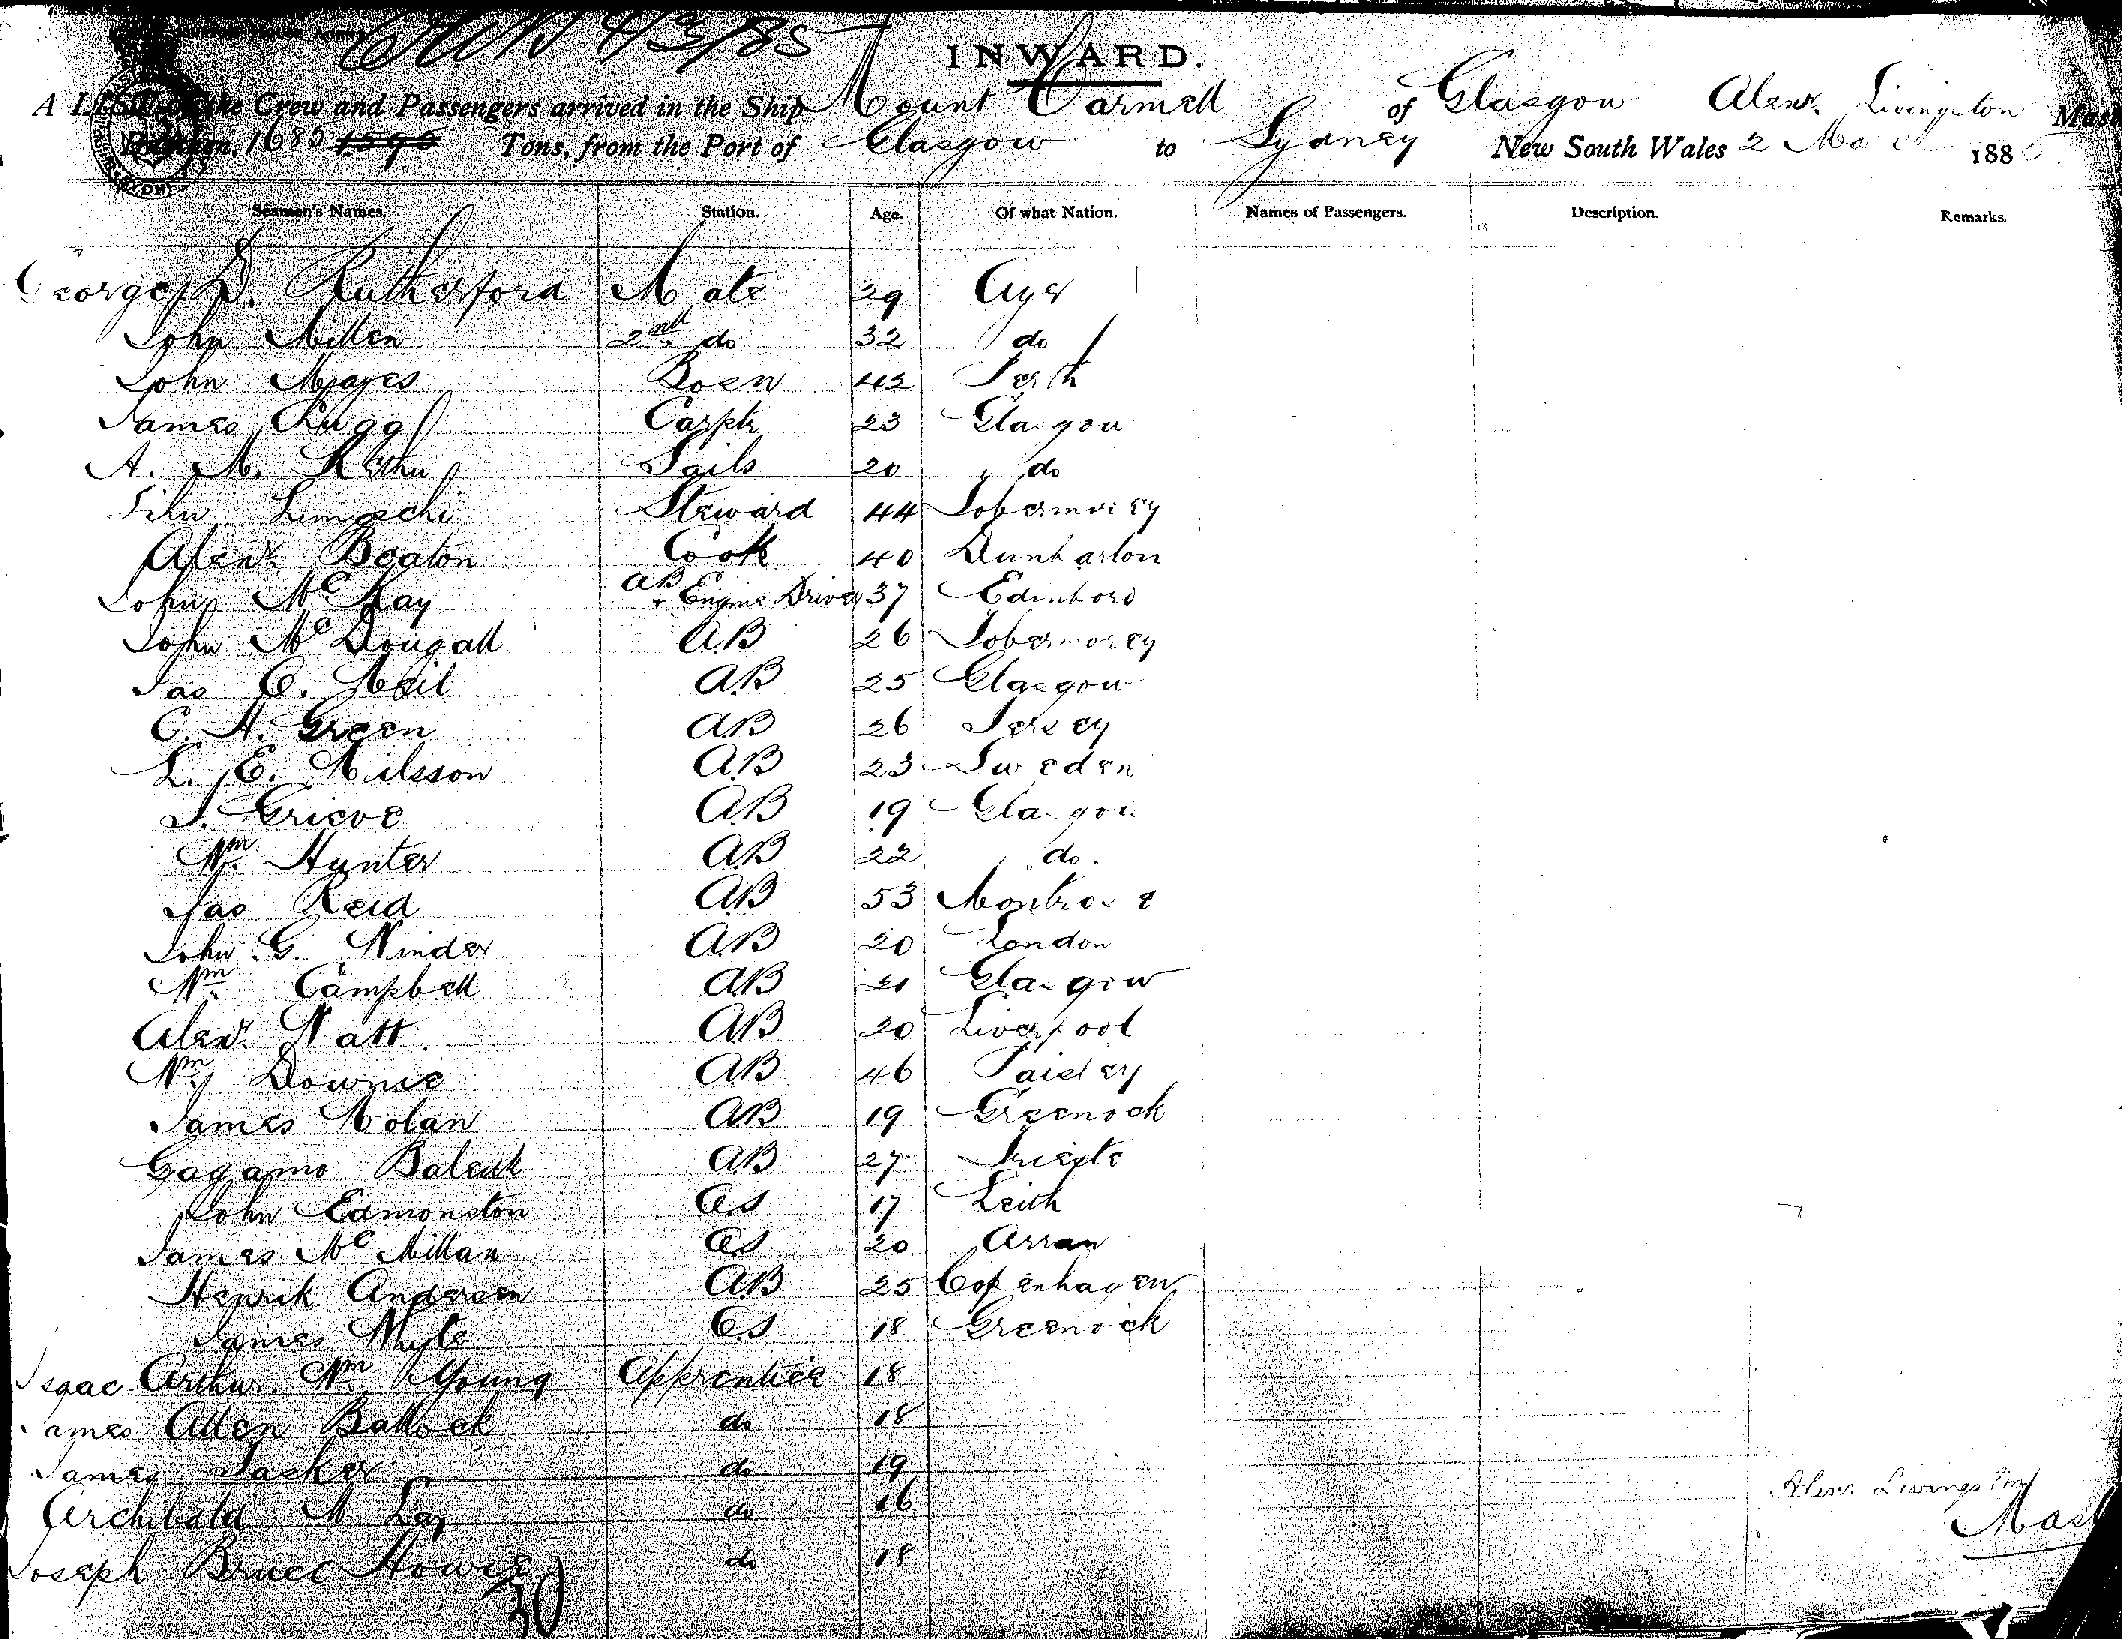 4/3/85
INWARD.
A LIST of the Crew and Passengers arrived in the Ship Mount Carmell of Glasgow Alexr. Livingston Mast
Burthen, 1685 Tons, from the Port of Glasgow to Sydney New South Wales 2 March 188
Seamen's Names. Station. Age. Of what Nation. Names of Passengers. Description. Remarks.
George D. Rutherford Mate 29 Ayr
John Millen 2nd do 32 do
John Mayes Bosn 42 Perth
James Carptr 23 Glasgow
A. M. Sails 20 do
Steward 44 Tobermorey
Alexr. Beaton Cook 40 Dunbarton
John McKay AB + Engine Driver 37 Edinboro
John McDougall A.B 26 Tobermorey
Jas C. Neil A.B 25 Glasgow
C. A. Green AB 26 Jersey
L. E. Nilsson A.B 23 Sweden
J. Grieve A.B 19 Glasgow
Wm. Hunter A.B 22 do.
Jas Reid A.B 53 Montrose
John G. Winder A.B 20 London
Wm. Campbell A.B 21 Glasgow
Alexr. Watt A.B 20 Liverpool
Wm. Downie A.B 46 Paisley
James Nolan A.B 19 Greenock
AB 27 Trieste
John Edmonston OS 17 Leith
James McMillan OS 20 Arran
Henrik Andersen A.B 25 Copenhagen
James Whyte O.S 18 Greenock
Isaac Arthur Wm Young Apprentice 18
James Allen do 18
James Tasker do 19
Alexr. Livingston
Archibald M. Lay do 16
Mast
Joseph Bruce Howie do 18
30